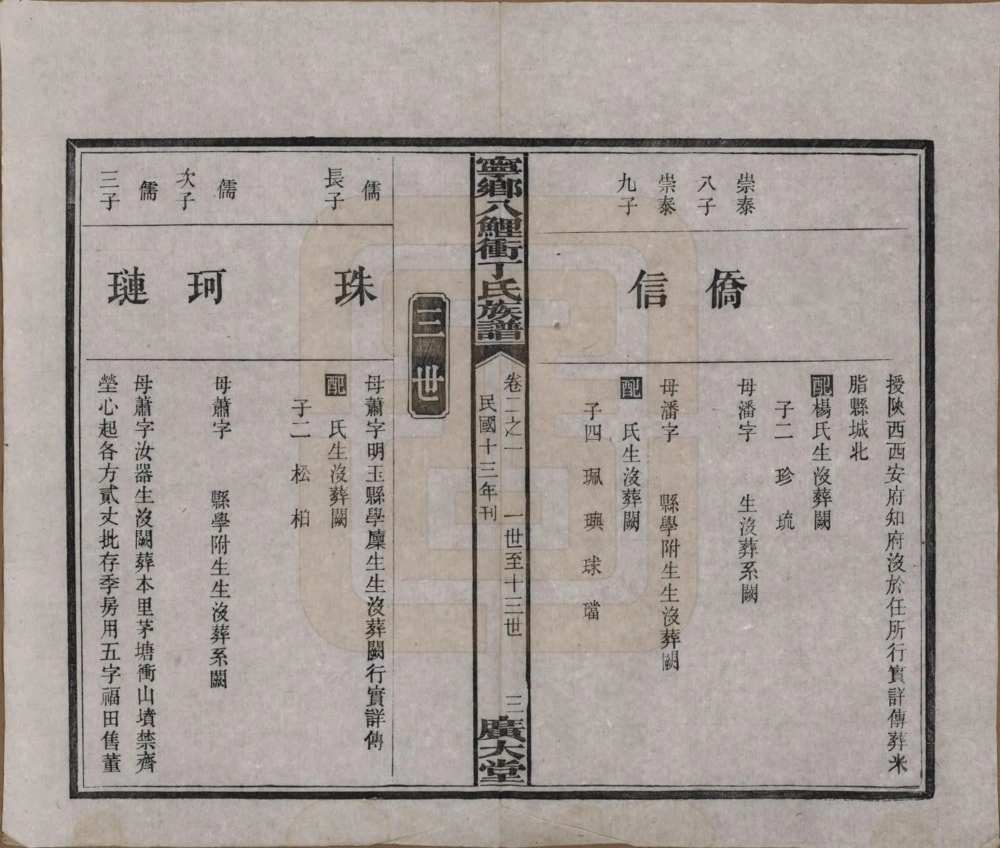 授陝西西安府知府沒於任所行實詳傳葬米
脂縣城北
配楊氏生沒葬闕
子二 珍 琉
崇泰
八子
僑
母潘字 生沒葬系闕
崇泰
九子
信
母潘字 縣學附生生沒葬闕
配 氏生沒葬闕
子四 珮 璵 球 璫
寧鄉八鯉衝丁氏族譜
卷二之一 一世至十三世
民國十三年刊
三
廣大堂
三世
儒
長子
珠
母蕭字明玉縣學廩生生沒葬闕行實詳傳
配 氏生沒葬闕
子二 松 柏
儒
次子
珂
母蕭字 縣學附生生沒葬系闕
儒
三子
璉
母蕭字汝器生沒闕葬本里茅塘衝山墳禁齊
塋心起各方貳丈批存季房用五字福田售董